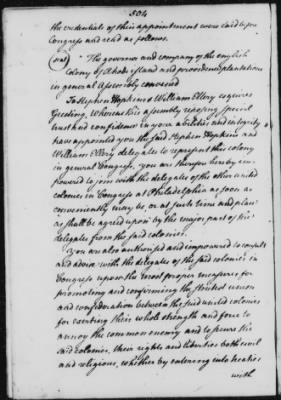 504
the credentials of their appointment were laid before
Congress and read as follows.
"The governor and company of the english
Colony of Rhode island and providence plantations
in general Assembly convened
To Stephen Hopkins & William Ellery esquires
Greeting, Whereas this assembly reposing special
trust and confidence in your abilities and integrity
have appointed you the said Stephen Hopkins and
William Ellery delegates to represent this colony
in general Congress, you are therefore hereby em-
powered to join with the delegates of the other united
colonies in Congress at Philadelphia as soon as
conveniently may be or at such time and place
as shall be agreed upon by the major part of the
delegates from the said colonies.
You are also authorised and impowered to consult
and advise with the delegates of the said colonies in
Congress upon the most proper measures for
promoting and confirming the strictest union
and confederation between the said united colonies
for exerting their whole strength and force to
annoy the common enemy and to secure the
said colonies, their rights and liberties both civil
and religious, whether by entering into treaties
with